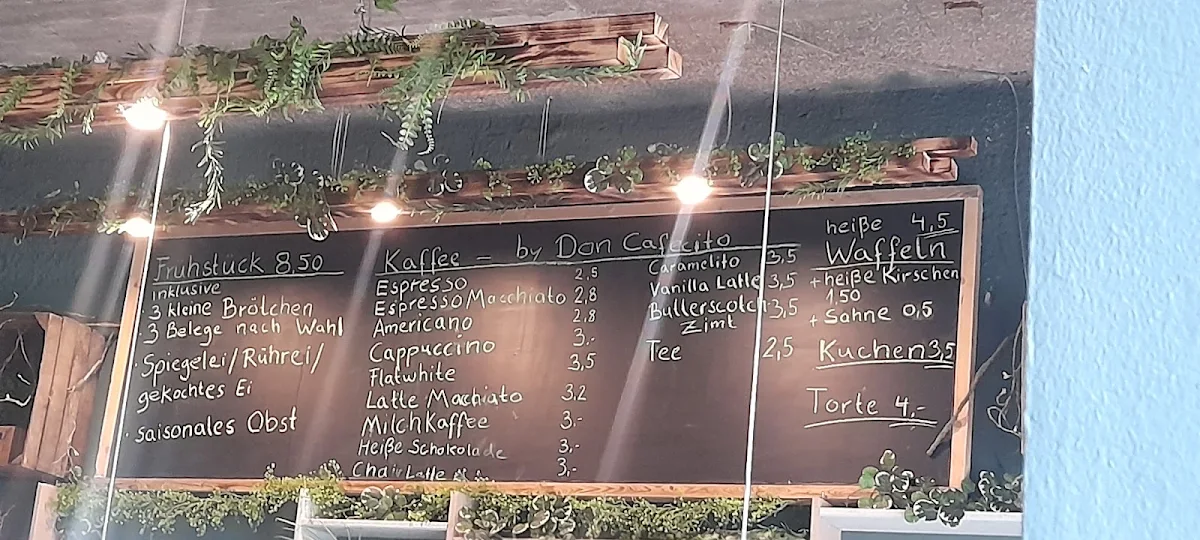 Frühstück 8,50
inklusive
· 3 kleine Brötchen
· 3 Belege nach Wahl
· Spiegelei/Rührei/
gekochtes Ei
· saisonales Obst
Kaffee – by Don Cafecito
Espresso 2,5
Espresso Macchiato 2,8
Americano 2,8
Cappuccino 3,-
Flatwhite 3,5
Latte Machiato 3,2
Milchkaffee 3,-
Heiße Schokolade 3,-
Chai Latte 3,-
Caramelito 3,5
Vanilla Latte 3,5
Butterscotch 3,5
Zimt
Tee 2,5
heiße 4,5
Waffeln
+ heiße Kirschen
1,50
+ Sahne 0,5
Kuchen 3,5
Torte 4,-